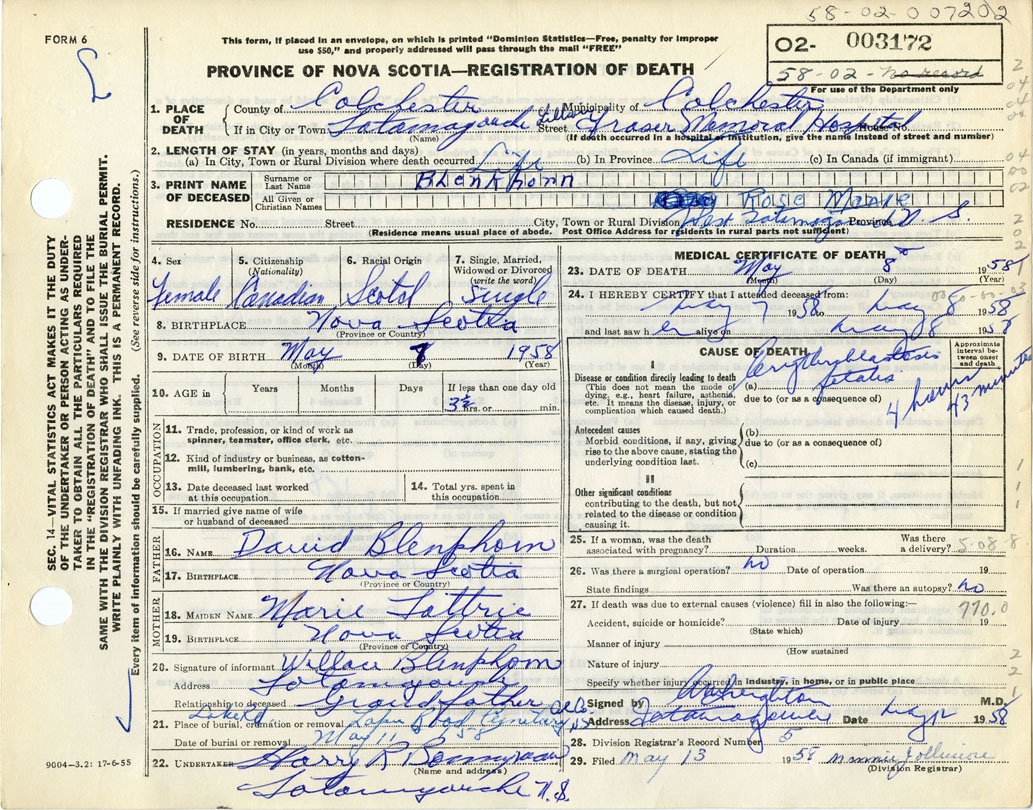 58-02-007202
FORM 6
This form, if placed in an envelope, on which is printed "Dominion Statistics—Free, penalty for improper
use $50," and properly addressed will pass through the mail "FREE"
02- 003172
58-02- No record
For use of the Department only
PROVINCE OF NOVA SCOTIA—REGISTRATION OF DEATH
1. PLACE OF DEATH
County of Colchester Municipality of Colchester
If in City or Town Tatamagouche Street Lillian Fraser Memorial Hospital House No.
(Name) (If death occurred in a hospital or institution, give the name instead of street and number)
2. LENGTH OF STAY (in years, months and days)
(a) In City, Town or Rural Division where death occurred Life (b) In Province Life (c) In Canada (if immigrant)
3. PRINT NAME OF DECEASED
Surname or Last Name Blenkhorn
All Given or Christian Names Rosie Marie
RESIDENCE No. Street City, Town or Rural Division West Tatamagouche Province N. S.
(Residence means usual place of abode. Post Office Address for residents in rural parts not sufficient)
4. Sex female
5. Citizenship (Nationality) Canadian
6. Racial Origin Scotch
7. Single, Married, Widowed or Divorced (write the word) Single
8. BIRTHPLACE Nova Scotia
(Province or Country)
9. DATE OF BIRTH May 8 1958
(Month) (Day) (Year)
10. AGE in Years Months Days If less than one day old
3½ hrs. or min.
OCCUPATION
11. Trade, profession, or kind of work as spinner, teamster, office clerk, etc.
12. Kind of industry or business, as cotton-mill, lumbering, bank, etc.
13. Date deceased last worked at this occupation
14. Total yrs. spent in this occupation
15. If married give name of wife or husband of deceased
FATHER
16. NAME David Blenkhorn
17. BIRTHPLACE Nova Scotia
(Province or Country)
MOTHER
18. MAIDEN NAME Marie Tattrie
19. BIRTHPLACE Nova Scotia
(Province or Country)
20. Signature of informant Wallace Blenkhorn
Address Tatamagouche
Relationship to deceased Grand father
21. Place of burial, cremation or removal Lake Rd Cemetery
Date of burial or removal May 11 58
22. UNDERTAKER Harry R
(Name and address)
Tatamagouche N.S.
MEDICAL CERTIFICATE OF DEATH
23. DATE OF DEATH May 8th 1958
(Month) (Day) (Year)
24. I HEREBY CERTIFY that I attended deceased from:
May 1958 to May 8 1958
and last saw h er alive on May 8 1958
CAUSE OF DEATH
Approximate interval between onset and death
I
Disease or condition directly leading to death
(This does not mean the mode of dying, e.g., heart failure, asthenia, etc. It means the disease, injury, or complication which caused death.)
(a) Erythroblastosis fetalis
due to (or as a consequence of)
4 hours 43 minutes
Antecedent causes
Morbid conditions, if any, giving rise to the above cause, stating the underlying condition last.
(b)
due to (or as a consequence of)
(c)
II
Other significant conditions
contributing to the death, but not related to the disease or condition causing it.
25. If a woman, was the death associated with pregnancy? Duration weeks. Was there a delivery?
5-08-8
26. Was there a surgical operation? no Date of operation 19
State findings Was there an autopsy? no
27. If death was due to external causes (violence) fill in also the following:
770.0
Accident, suicide or homicide? Date of injury 19
(State which)
Manner of injury
(How sustained
Nature of injury
Specify whether injury occurred in industry, in home, or in public place
Signed by M.D.
Address Tatamagouche Date May 1958
28. Division Registrar's Record Number 5
29. Filed May 13 1958
(Division Registrar)
9004—3.2: 17-6-55
SEC. 14—VITAL STATISTICS ACT MAKES IT THE DUTY
OF THE UNDERTAKER OR PERSON ACTING AS UNDER-
TAKER TO OBTAIN ALL THE PARTICULARS REQUIRED
IN THE "REGISTRATION OF DEATH" AND TO FILE THE
SAME WITH THE DIVISION REGISTRAR WHO SHALL ISSUE THE BURIAL PERMIT.
WRITE PLAINLY WITH UNFADING INK. THIS IS A PERMANENT RECORD.
Every item of information should be carefully supplied. (See reverse side for instructions.)